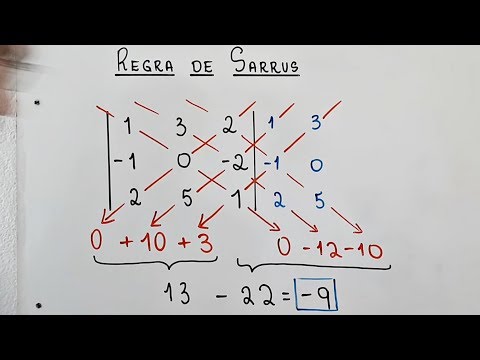 REGRA DE SARRUS
1 3 2 1 3
-1 0 -2 -1 0
2 5 1 2 5
0 + 10 + 3 0 - 12 - 10
13 - 22 = -9